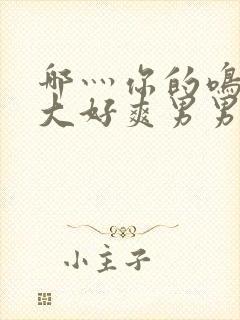 哪灬你的鳴
大好爽男男
小主子